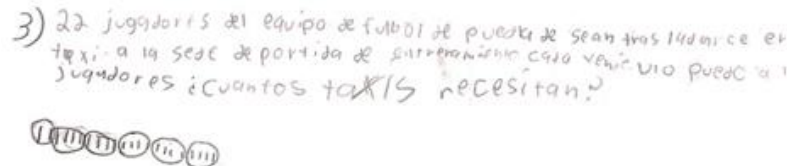 3) 22 jugadores del equipo de futbol de puebla de sean trasladarce en
taxi a la sede deportida de entrenamiento cada veniculo puede a
jugadores ¿Cuantos taxis necesitan?